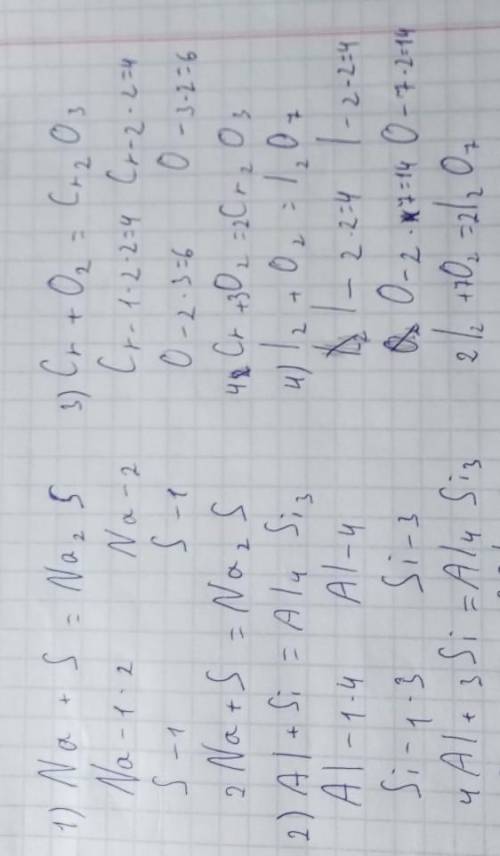 1) Na + S = Na₂ S
Na - 1 · 2 Na - 2
S - 1 S - 1
2 Na + S = Na₂ S
2) Al + Si = Al₄ Si₃
Al - 1 · 4 Al - 4
Si - 1 · 3 Si - 3
4 Al + 3 Si = Al₄ Si₃
3) Cr + O₂ = Cr₂ O₃
Cr - 1 · 2 · 2 = 4 Cr - 2 · 2 = 4
O - 2 · 3 = 6 O - 3 · 2 = 6
4 Cr + 3O₂ = 2Cr₂ O₃
4) I₂ + O₂ = I₂ O₇
I - 2 · 2 = 4 I - 2 · 2 = 4
O - 2 · 7 = 14 O - 7 · 2 = 14
2 I₂ + 7O₂ = 2I₂ O₇